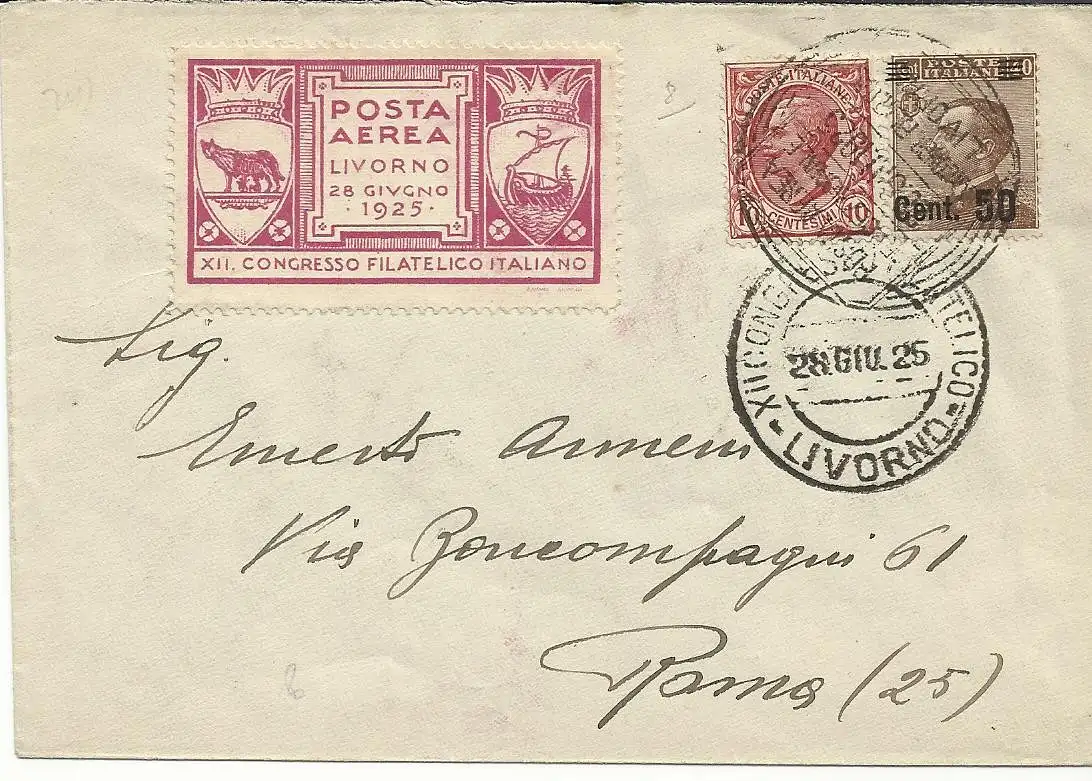 POSTA
AEREA
LIVORNO
28 GIVGNO
· 1925 ·
XII. CONGRESSO FILATELICO ITALIANO
POSTE ITALIANE
10 CENTESIMI 10
POSTE
ITALIANE
Cent. 50
XII CONG TELICO
28.GIU.25
- LIVORNO -
Sig.
Ernesto Armeni
Via Boncompagni 61
Roma (25)